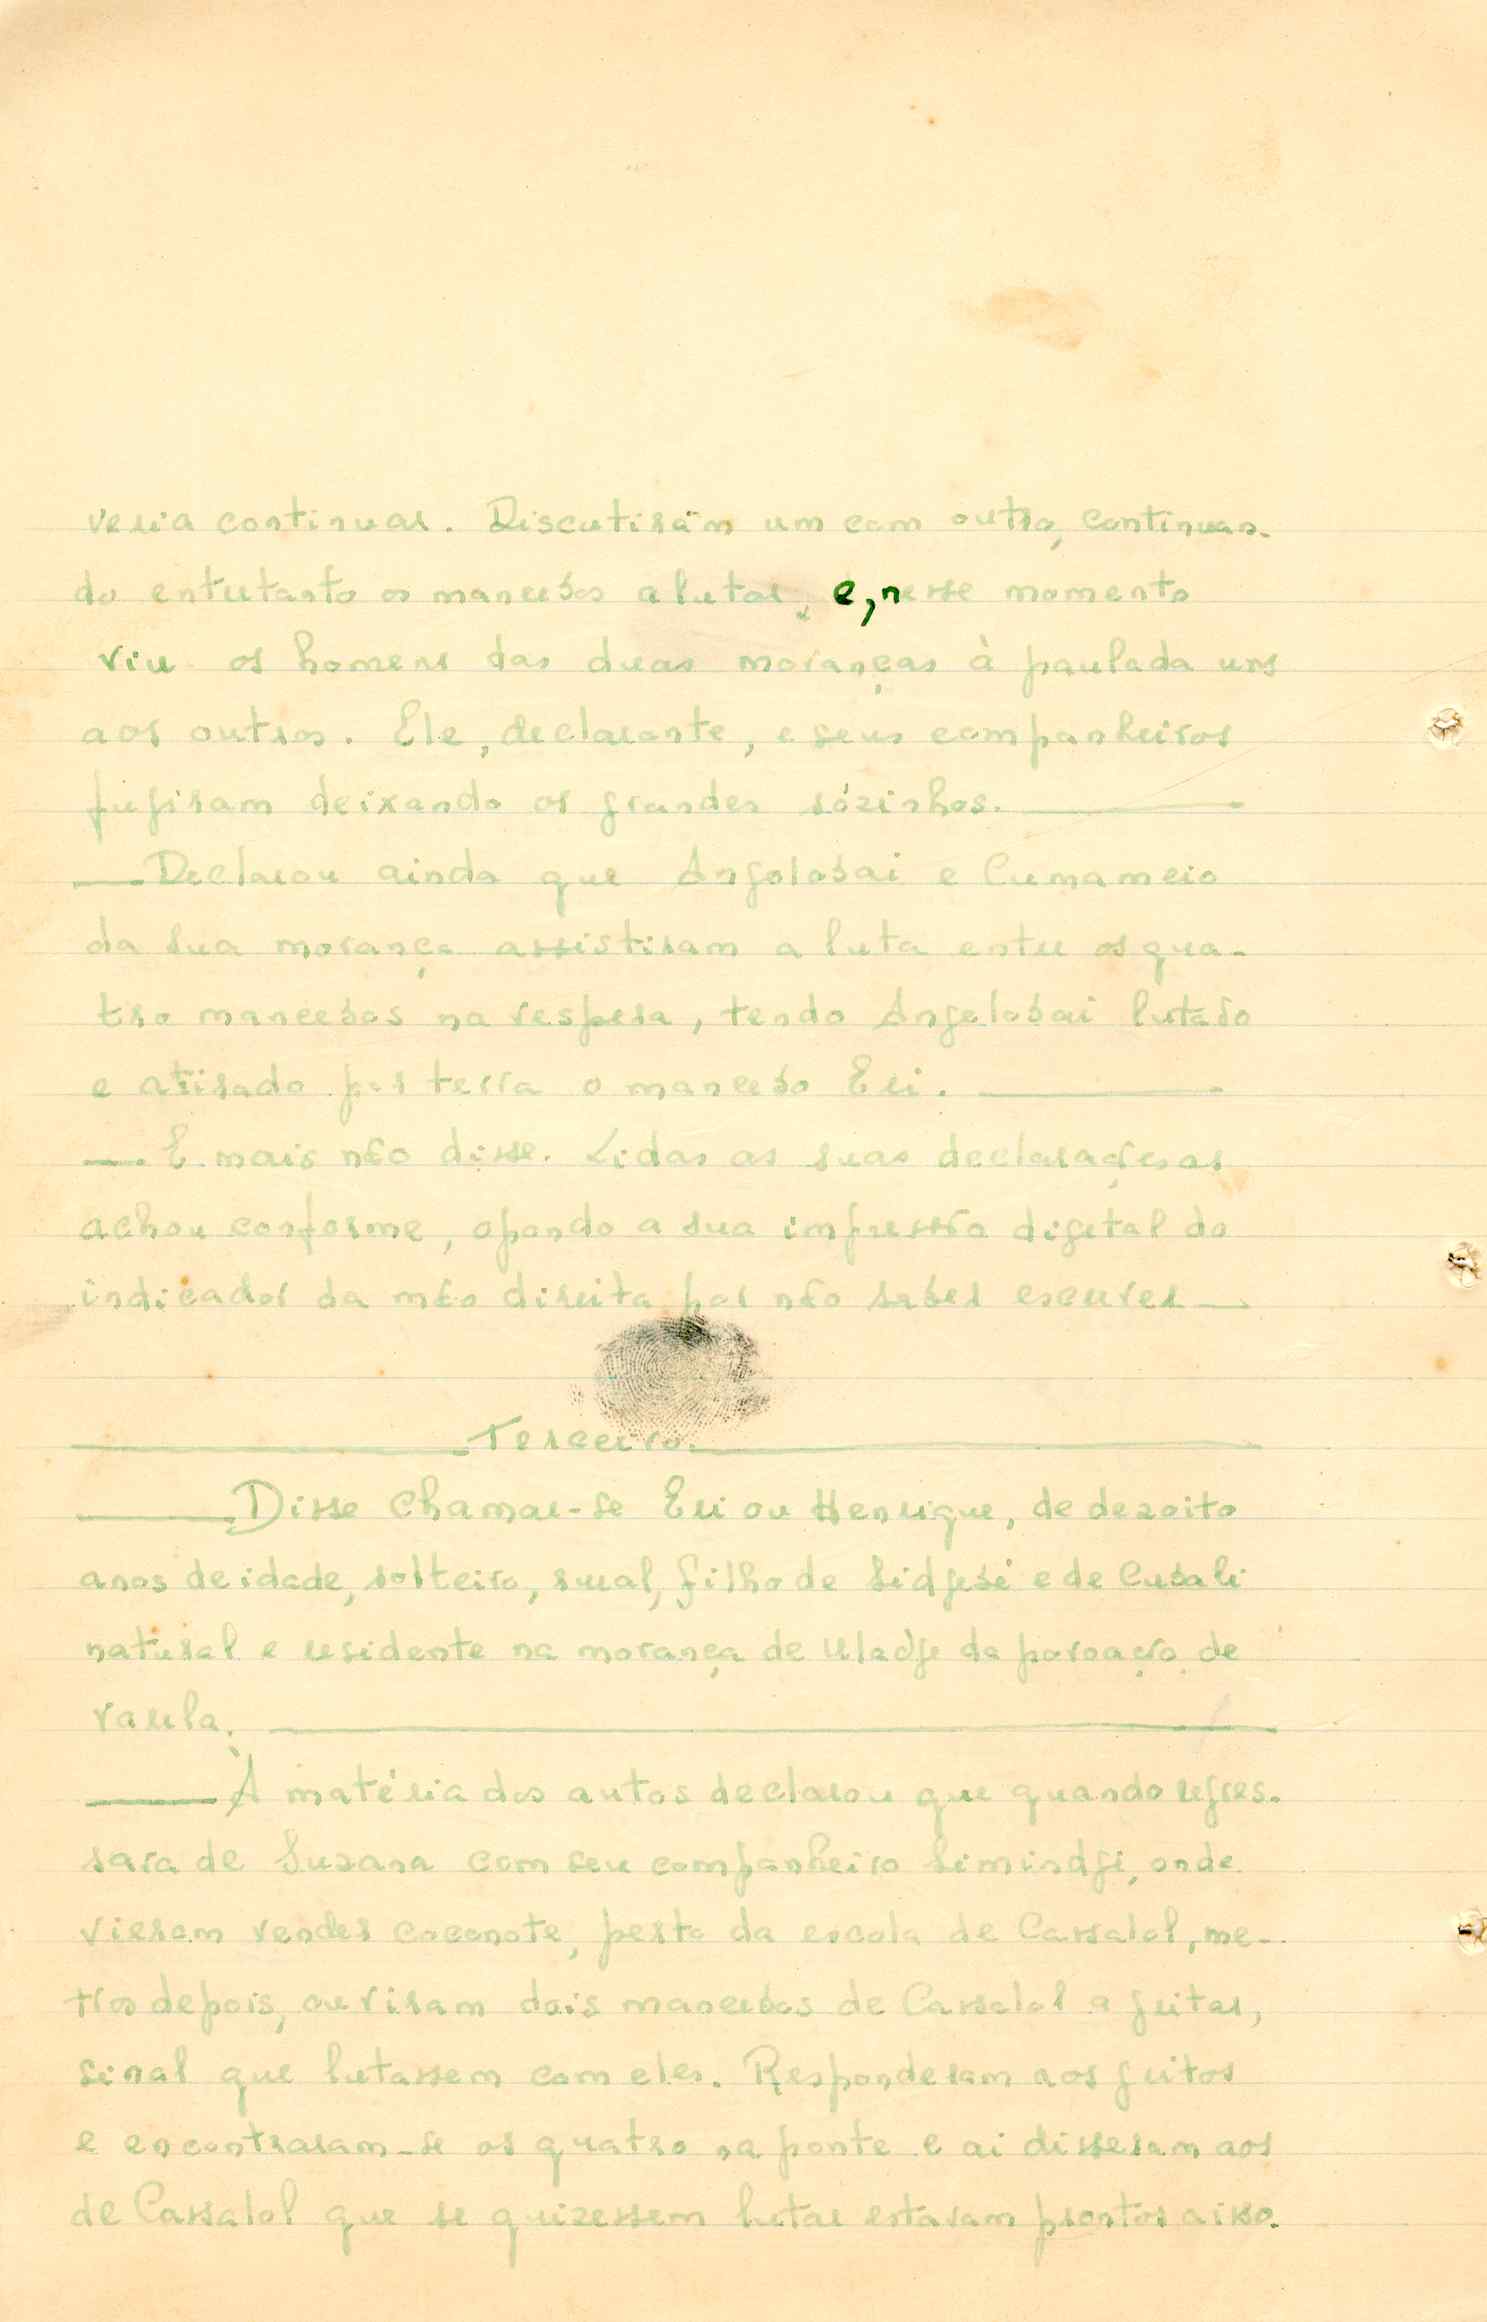 veria continuar. Discutiram um com outro, continuan-
do entretanto os mancebos a lutar, e, nesse momento
viu os homens das duas moranças à paulada uns
aos outros. Ele, declarante, e seus companheiros
fugiram deixando os grandes sózinhos.
Declarou ainda que Angolobai e Cumameio
da sua morança assistiram a luta entre os qua-
tro mancebos na vespera, tendo Angolobai lutado
e atirado por terra o mancebo Eri.
E mais não disse. Lidas as suas declarações as
achou conforme, opondo a sua impressão digital do
indicador da mão direita por não saber escrever
Terceiro.
Disse chamar-se Eri ou Henrique, de dezoito
anos de idade, solteiro, rural, filho de Sidjebé e de Cubali
natural e residente na morança de Uladje da povoação de
Varela.
À matéria dos autos declarou que quando regres-
sara de Suzana com seu companheiro Simindji, onde
vieram vender coconote, perto da escola de Cassalol, me-
tros depois, ouviram dois mancebos de Cassalol a gritar,
sinal que lutassem com eles. Responderam aos gritos
e encontraram-se os quatro na ponte e ai disseram aos
de Cassalol que se quizessem lutar estavam prontos a isso.